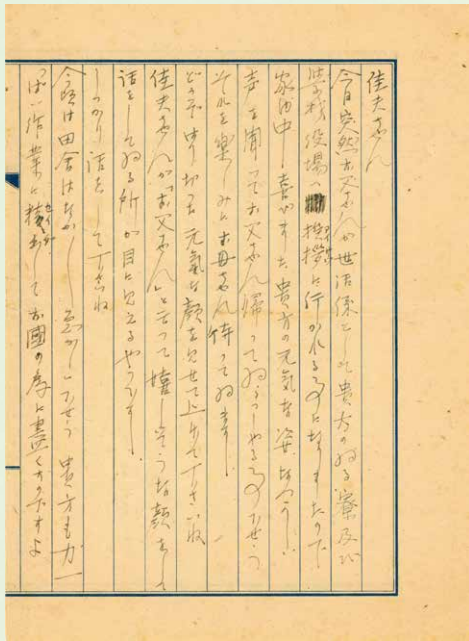 佳夫さん
今日突然お父さんが世話係として貴方の居る寮及び
学校役場へ挨拶に行かれる事になりましたので
家内中喜びました貴方の元気な姿なつかしい
声を聞いてお父さん帰っていらっしゃる事でせう
それを楽しみにお母さん待って居ます
どうぞはり切った元気な顔を見せて上げて下さいね
佳夫さんが「お父さん」と言って嬉しそうな顔をして
話をしている所が目に見えるやうです
しっかり話をして下さいね
今頃は田舎は忙がしい でせう 貴方も力一
っぱい作業に して お國の為に盡くすのですよ